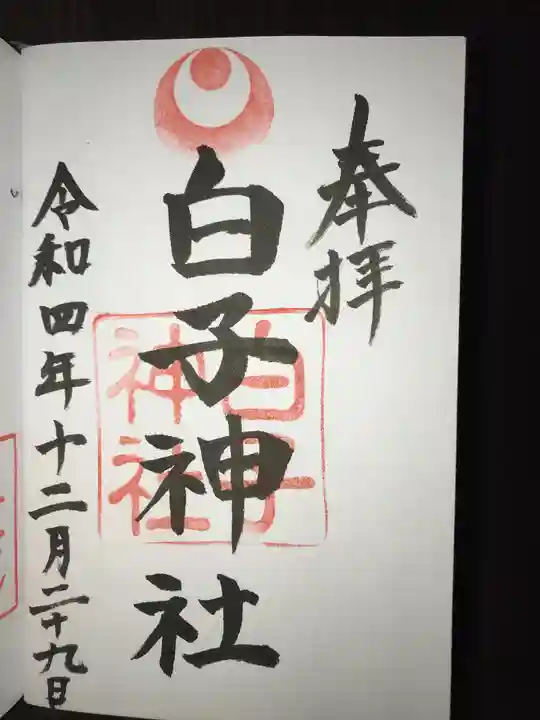 奉拝
白子神社
白子神社
令和四年十二月二十九日